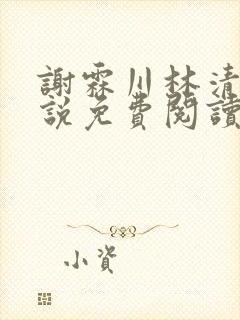 謝霖川林清
說免費閱讀
小資